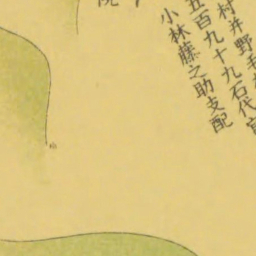 村井野毛
五百九十九石代官
小林藤之助支配
院